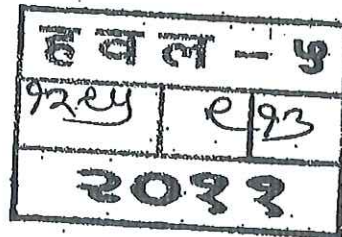 हवल - ५
१२९५ ९ १३
२०११